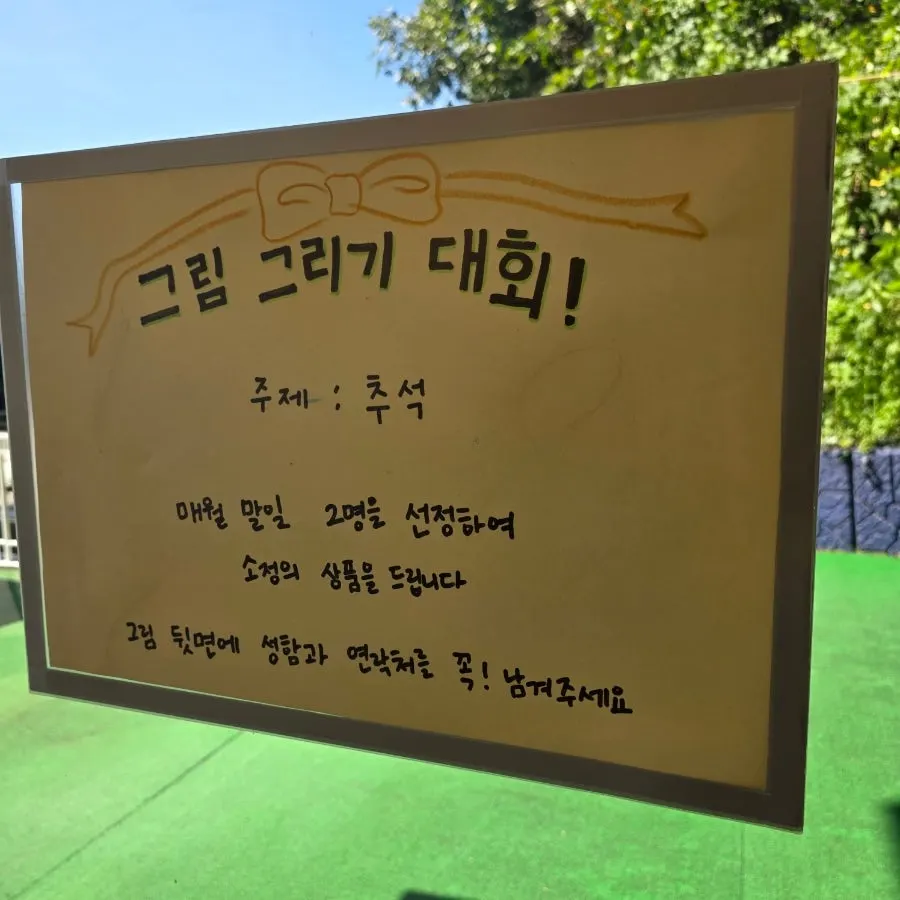 그림 그리기 대회!
주제 : 추석
매월 말일 2명을 선정하여
소정의 상품을 드립니다
그림 뒷면에 성함과 연락처를 꼭! 남겨주세요